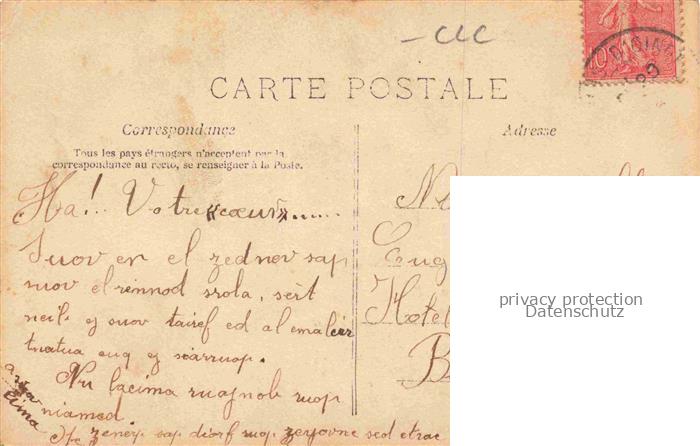 CLC
CARTE POSTALE
Correspondance
Tous les pays étrangers n'acceptent pas la
correspondance au recto, se renseigner à la Poste.
Ha!.. Votre «cœur»......
Suov en el zednev sap
suov el rennod srola, sèrt
neib ej suov tairef ed al emalcér
tnatua euq ej siarruop.
Nu lacima ruojnob ruop
niamed.
zenerp sap diorf ruop zeyovne sed etrac
Adresse
Eug
Hotel
B
10
privacy protection
Datenschutz